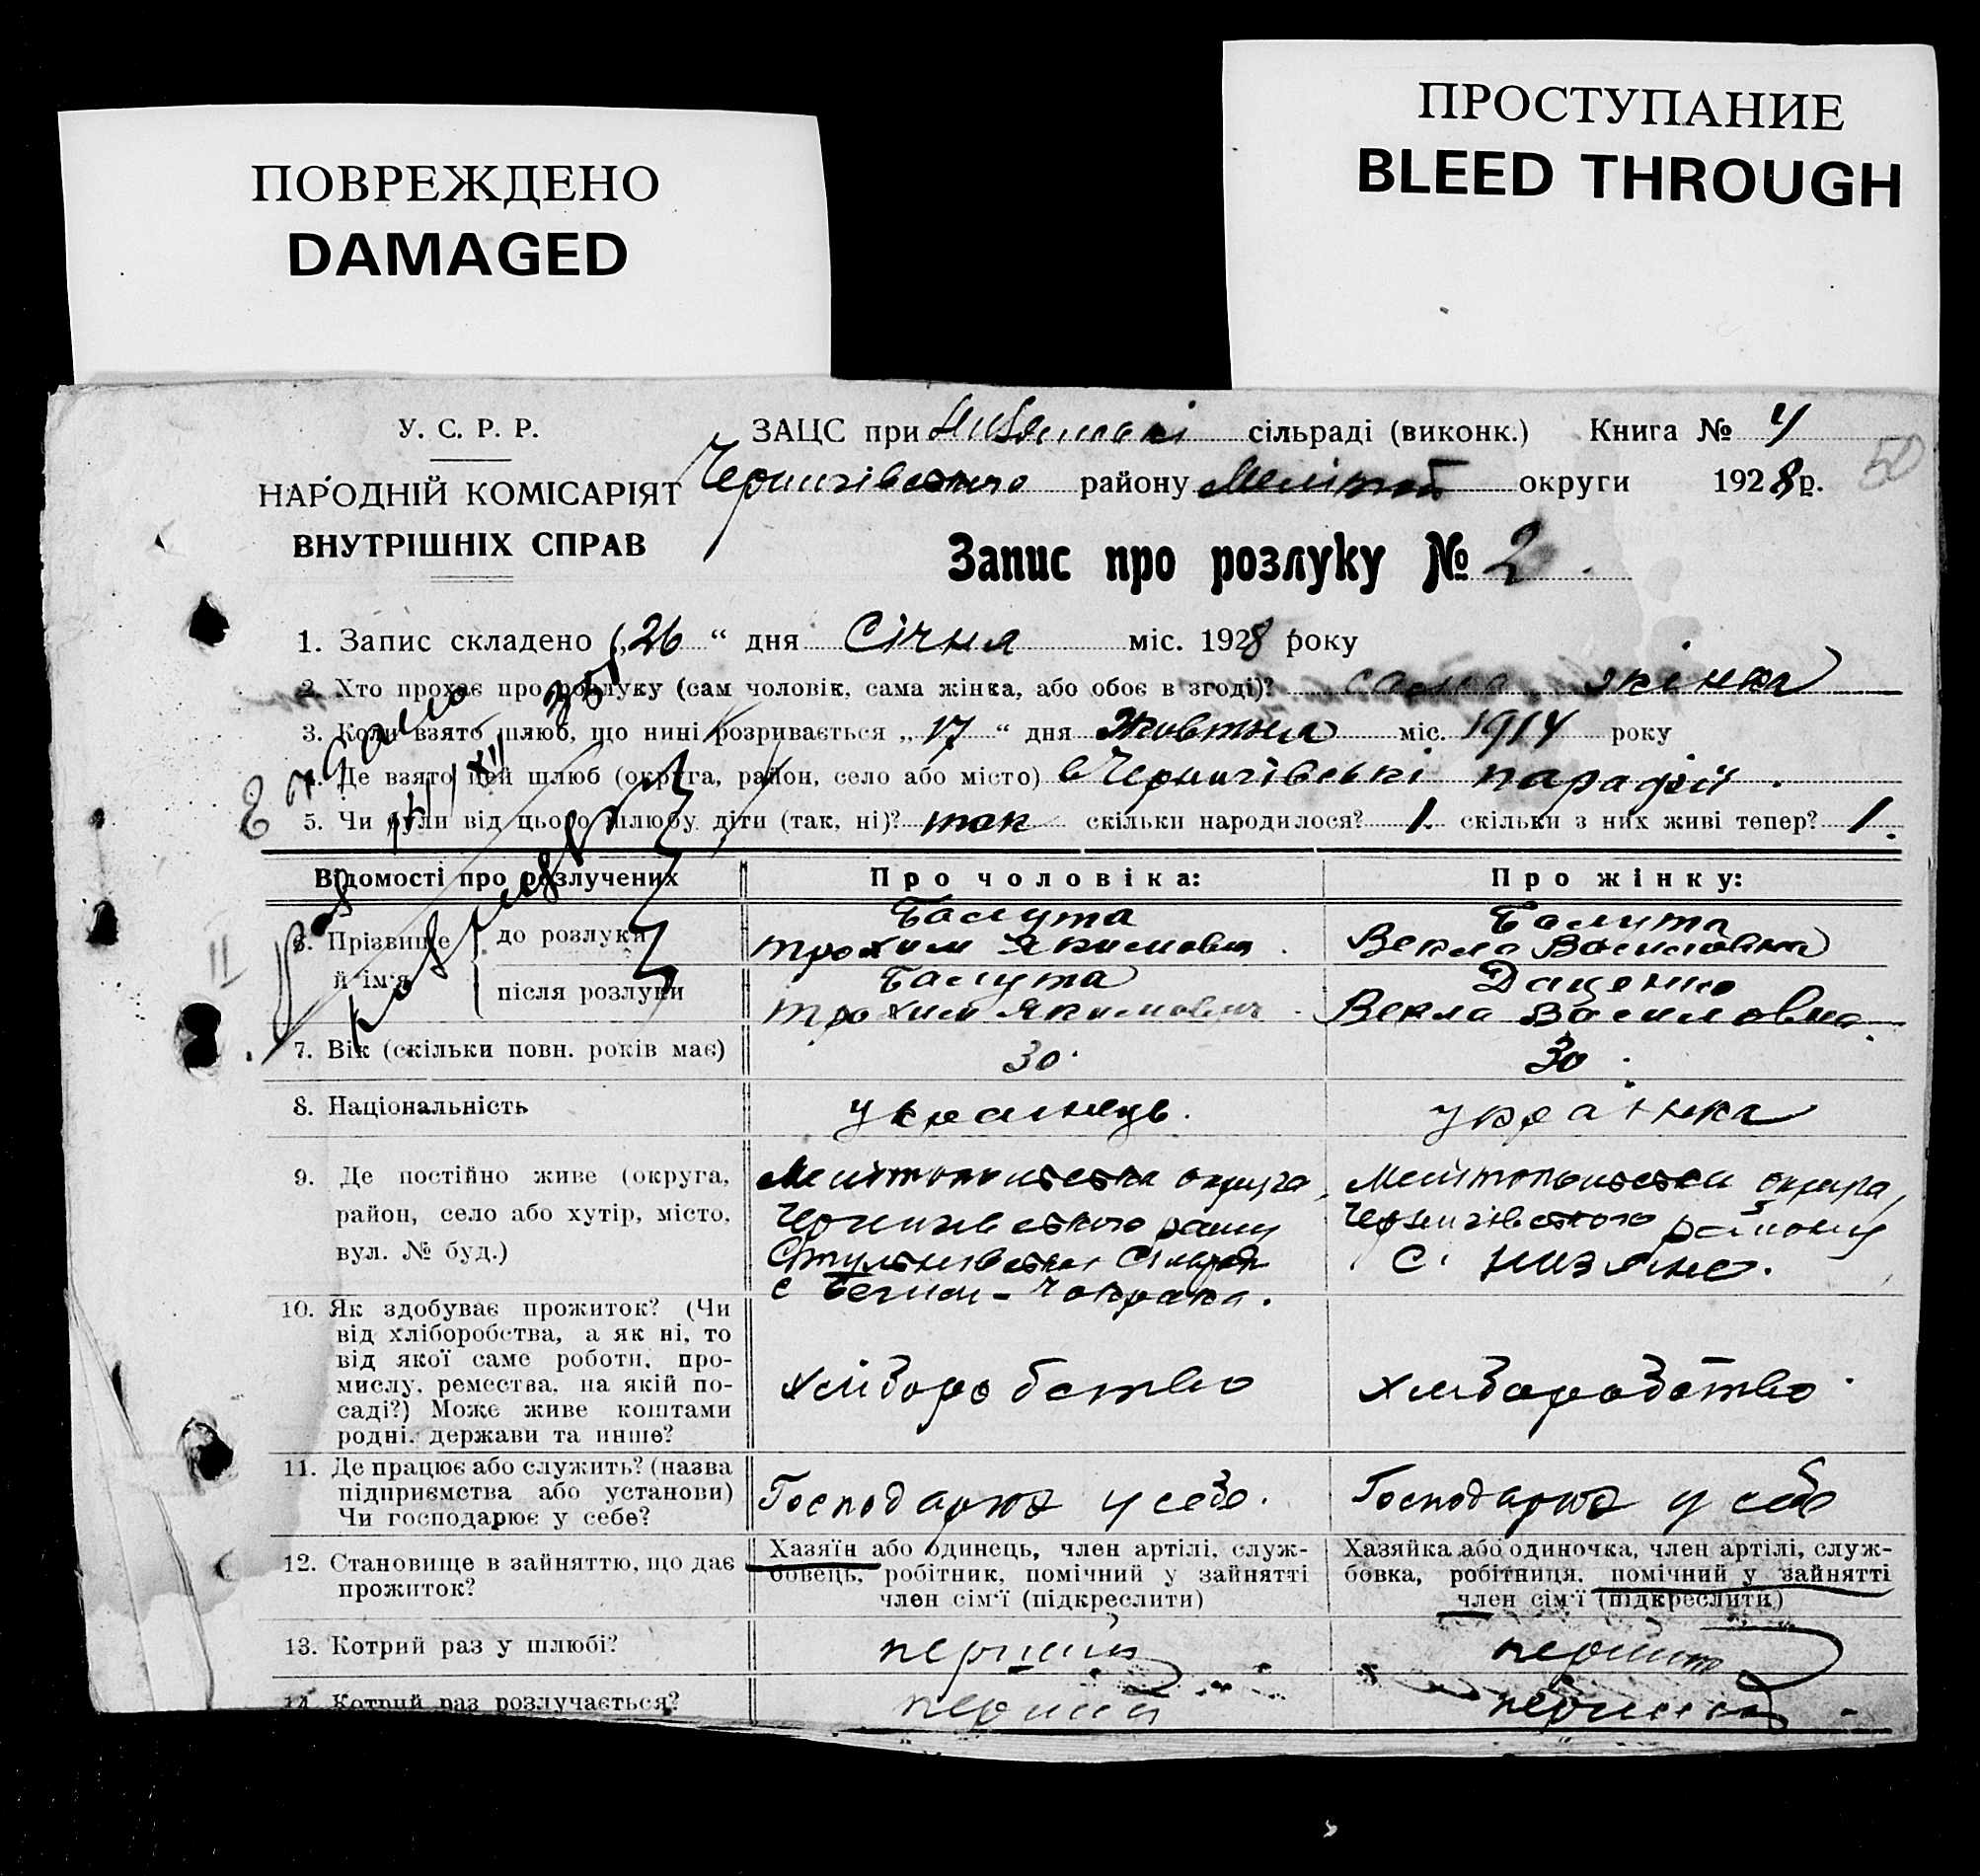 ПОВРЕЖДЕНО
DAMAGED
ПРОСТУПАНИЕ
BLEED THROUGH
У. С. Р. Р.
НАРОДНІЙ КОМІСАРІЯТ
ВНУТРІШНІХ СПРАВ
ЗАЦС при сільраді (виконк.) Книга № 4
50
Чернигівського району Меліт округи 1928 р.
Запис про розлуку № 2.
1. Запис складено „26 “ дня Січня міс. 1928 року
2. Хто прохає про розлуку (сам чоловік, сама жінка, або обоє в згоді)? сама жінка
3. Коли взято шлюб, що нині розривається „17 “ дня Жовтня міс. 1914 року
4. Де взято цей шлюб (округа, район, село або місто) в Чернигівські парафії.
5. Чи були від цього шлюбу діти (так, ні)? так скільки народилося? 1. скільки з них живі тепер? 1.
Відомості про розлучених
Про чоловіка:
Про жінку:
6. Прізвище й ім'я
до розлуки
Трохим Якимович.
Векла Василовна
після розлуки
Трохим Якимович.
Даценко
Векла Василовна.
7. Вік (скільки повн. років має)
30.
30.
8. Національність
українець.
українка
9. Де постійно живе (округа,
район, село або хутір, місто,
вул. № буд.)
Мелітопольська округа,
Чернигівського райну
с Бегим-Чокрака.
Мелітопольська округа,
Чернигівського району
с. Низяне.
10. Як здобуває прожиток? (Чи
від хліборобства, а як ні, то
від якої саме роботи, про-
мислу, ремества, на якій по-
саді?) Може живе коштами
родні, держави та инше?
хліборобство
хліборобство.
11. Де працює або служить? (назва
підприємства або установи)
Чи господарює у себе?
Господарює у себе.
Господарює у себе
12. Становище в зайняттю, що дає
прожиток?
Хазяїн або одинець, член артілі, служ-
бовець, робітник, помічний у зайнятті
член сім'ї (підкреслити)
Хазяйка або одиночка, член артілі, служ-
бовка, робітниця, помічний у зайнятті
член сім'ї (підкреслити)
13. Котрий раз у шлюбі?
перший
14. Котрий раз розлучається?
перший